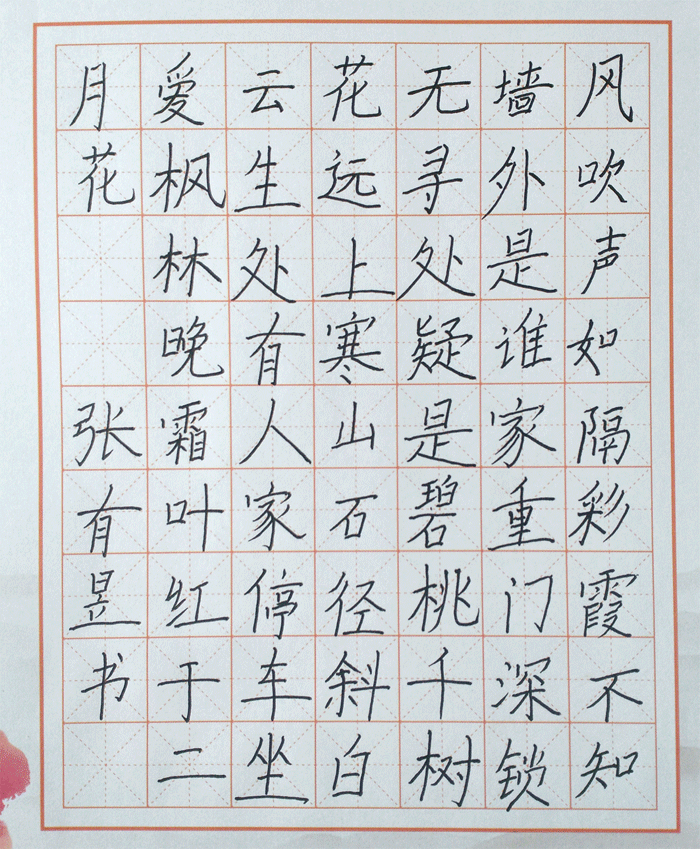 风吹声如隔彩霞不知
墙外是谁家重门深锁
无寻处疑是碧桃千树
花远上寒山石径斜白
云生处有人家停车坐
爱枫林晚霜叶红于二
月花 张有昱书